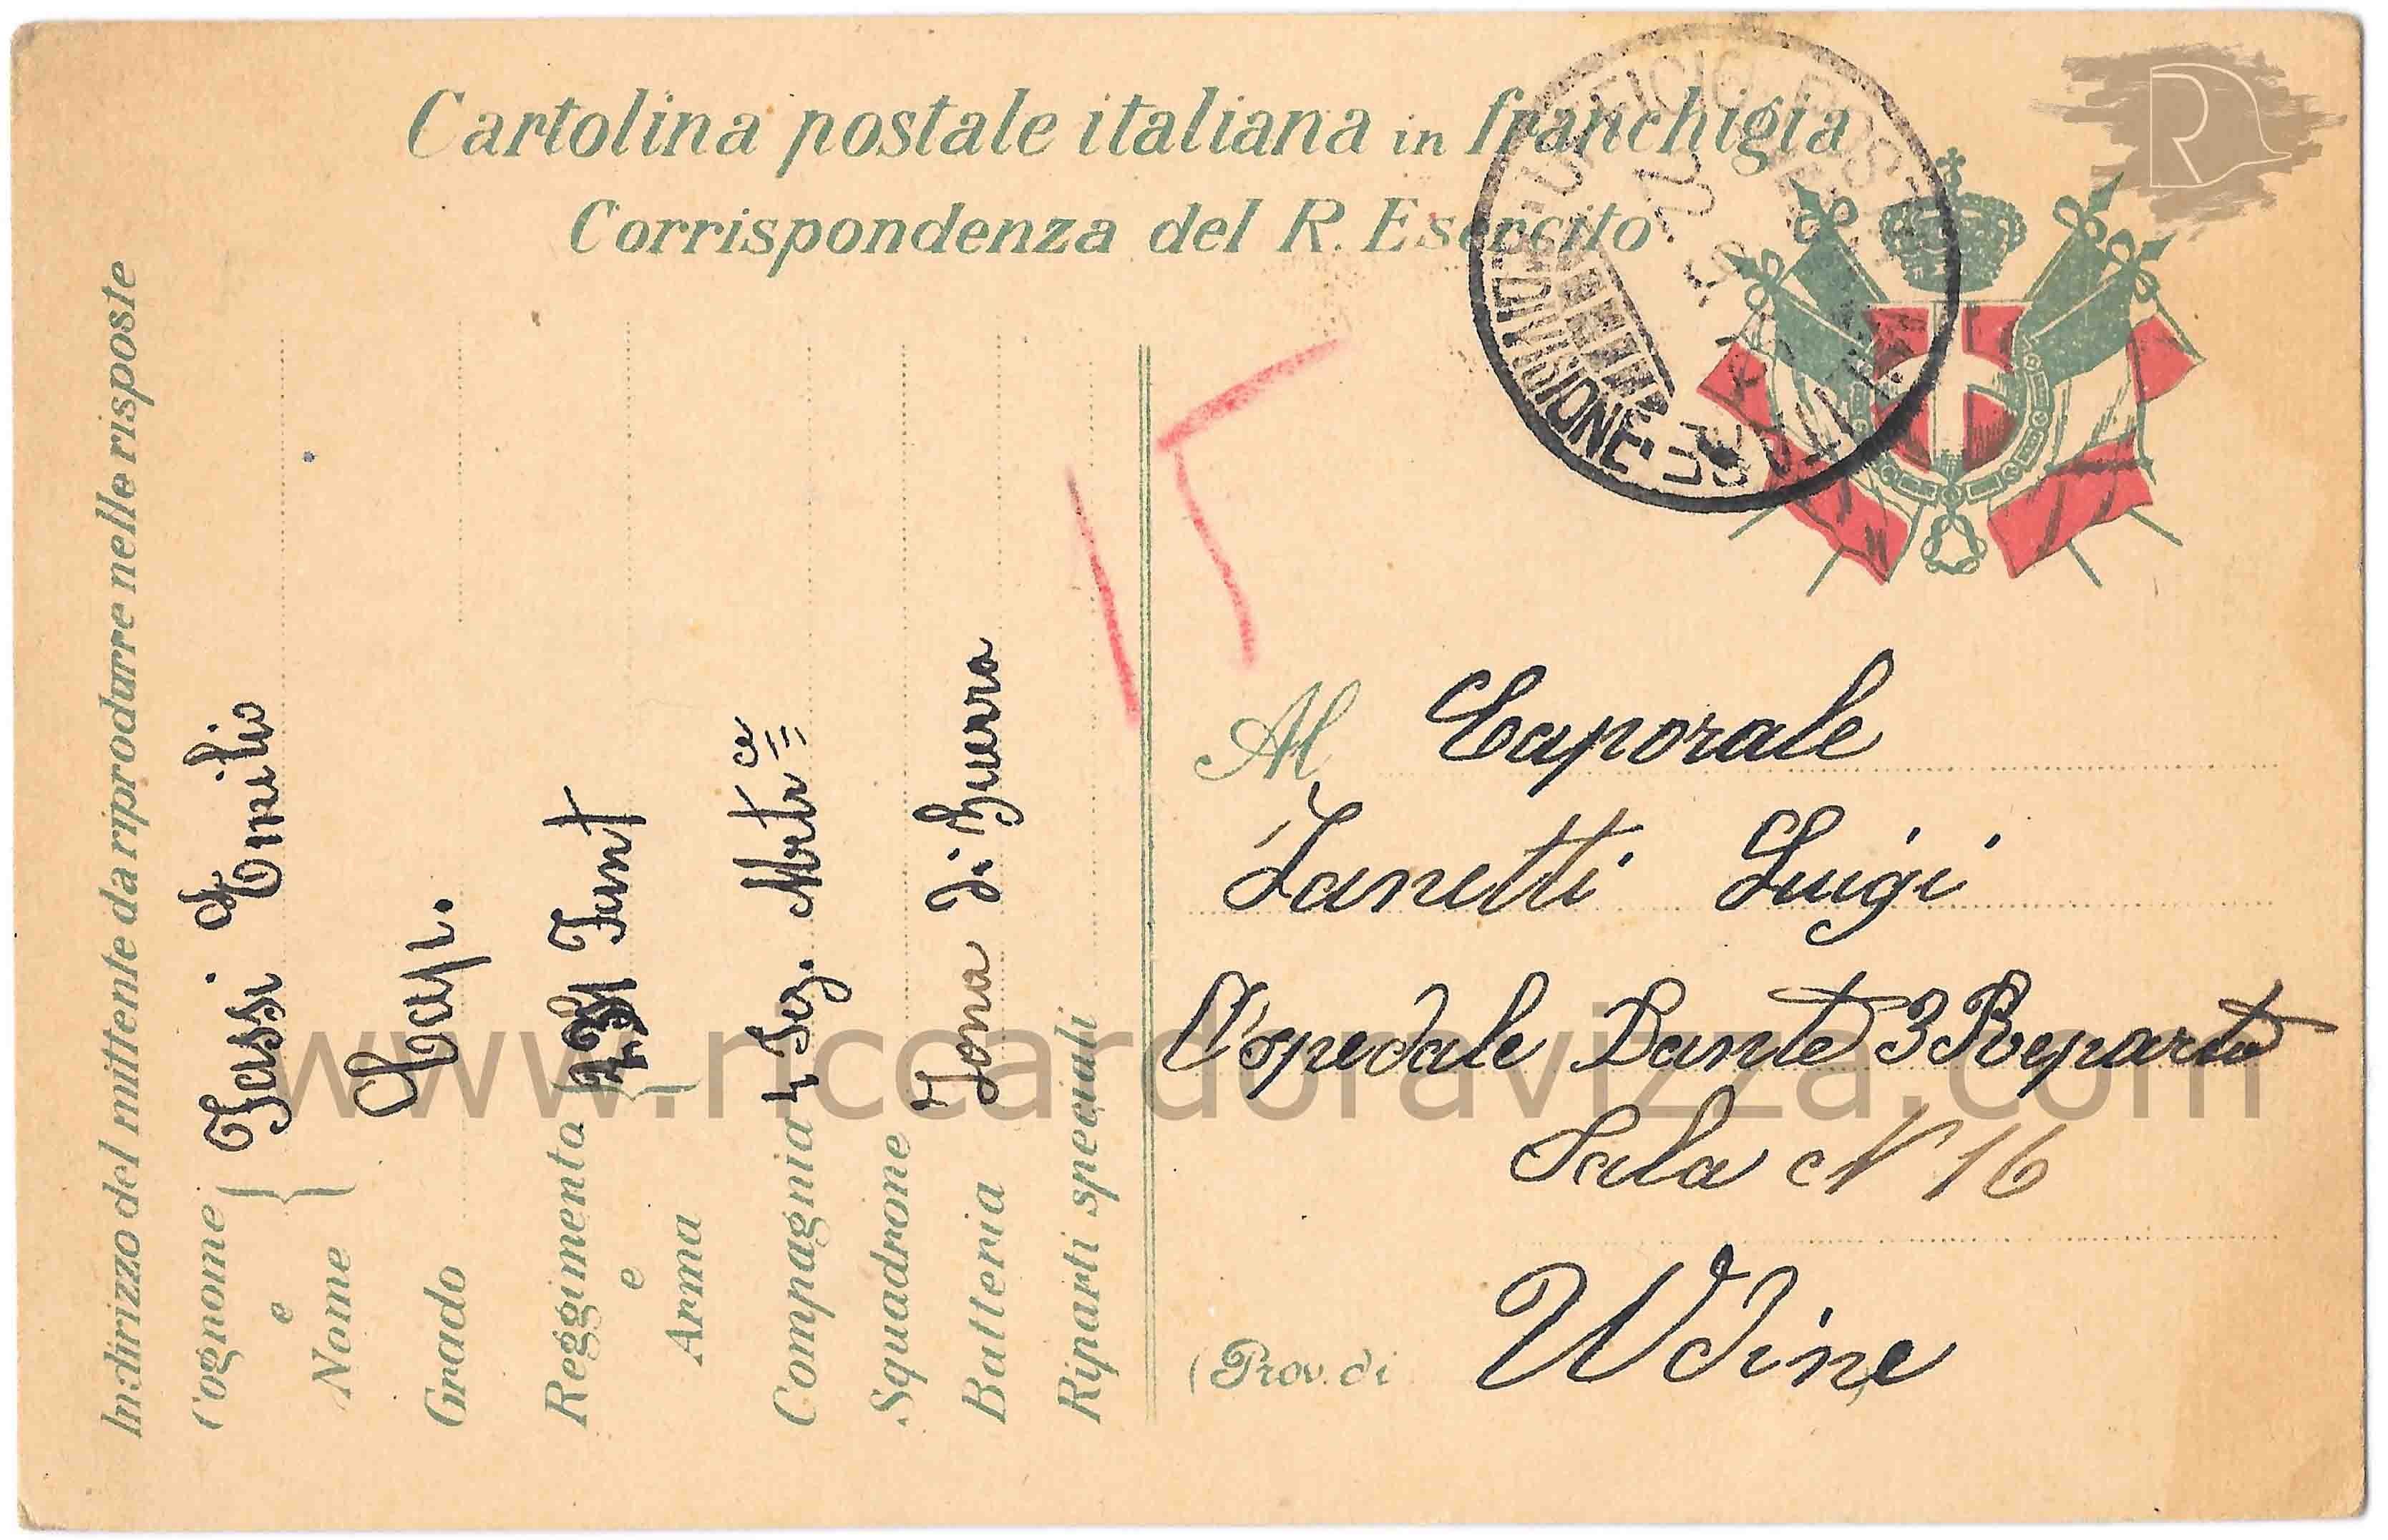 Cartolina postale italiana in franchigia
Corrispondenza del R. Esercito
UFFICIO POSTA MILITARE
22 5 16
DIVISIONE
Indirizzo del mittente da riprodurre nelle risposte
Cognome e Nome Tassi Emilio
Grado Cap.
Reggimento e Arma Fant
Compagnia 4 Sez. Mitr ce
Squadrone
Batteria Zona di Guerra
Riparti speciali
Al Caporale
Zanetti Luigi
Ospedale Dante 3 Reparto
Sala N 16
(Prov. di ) Udine
www.riccardoravizza.com
R